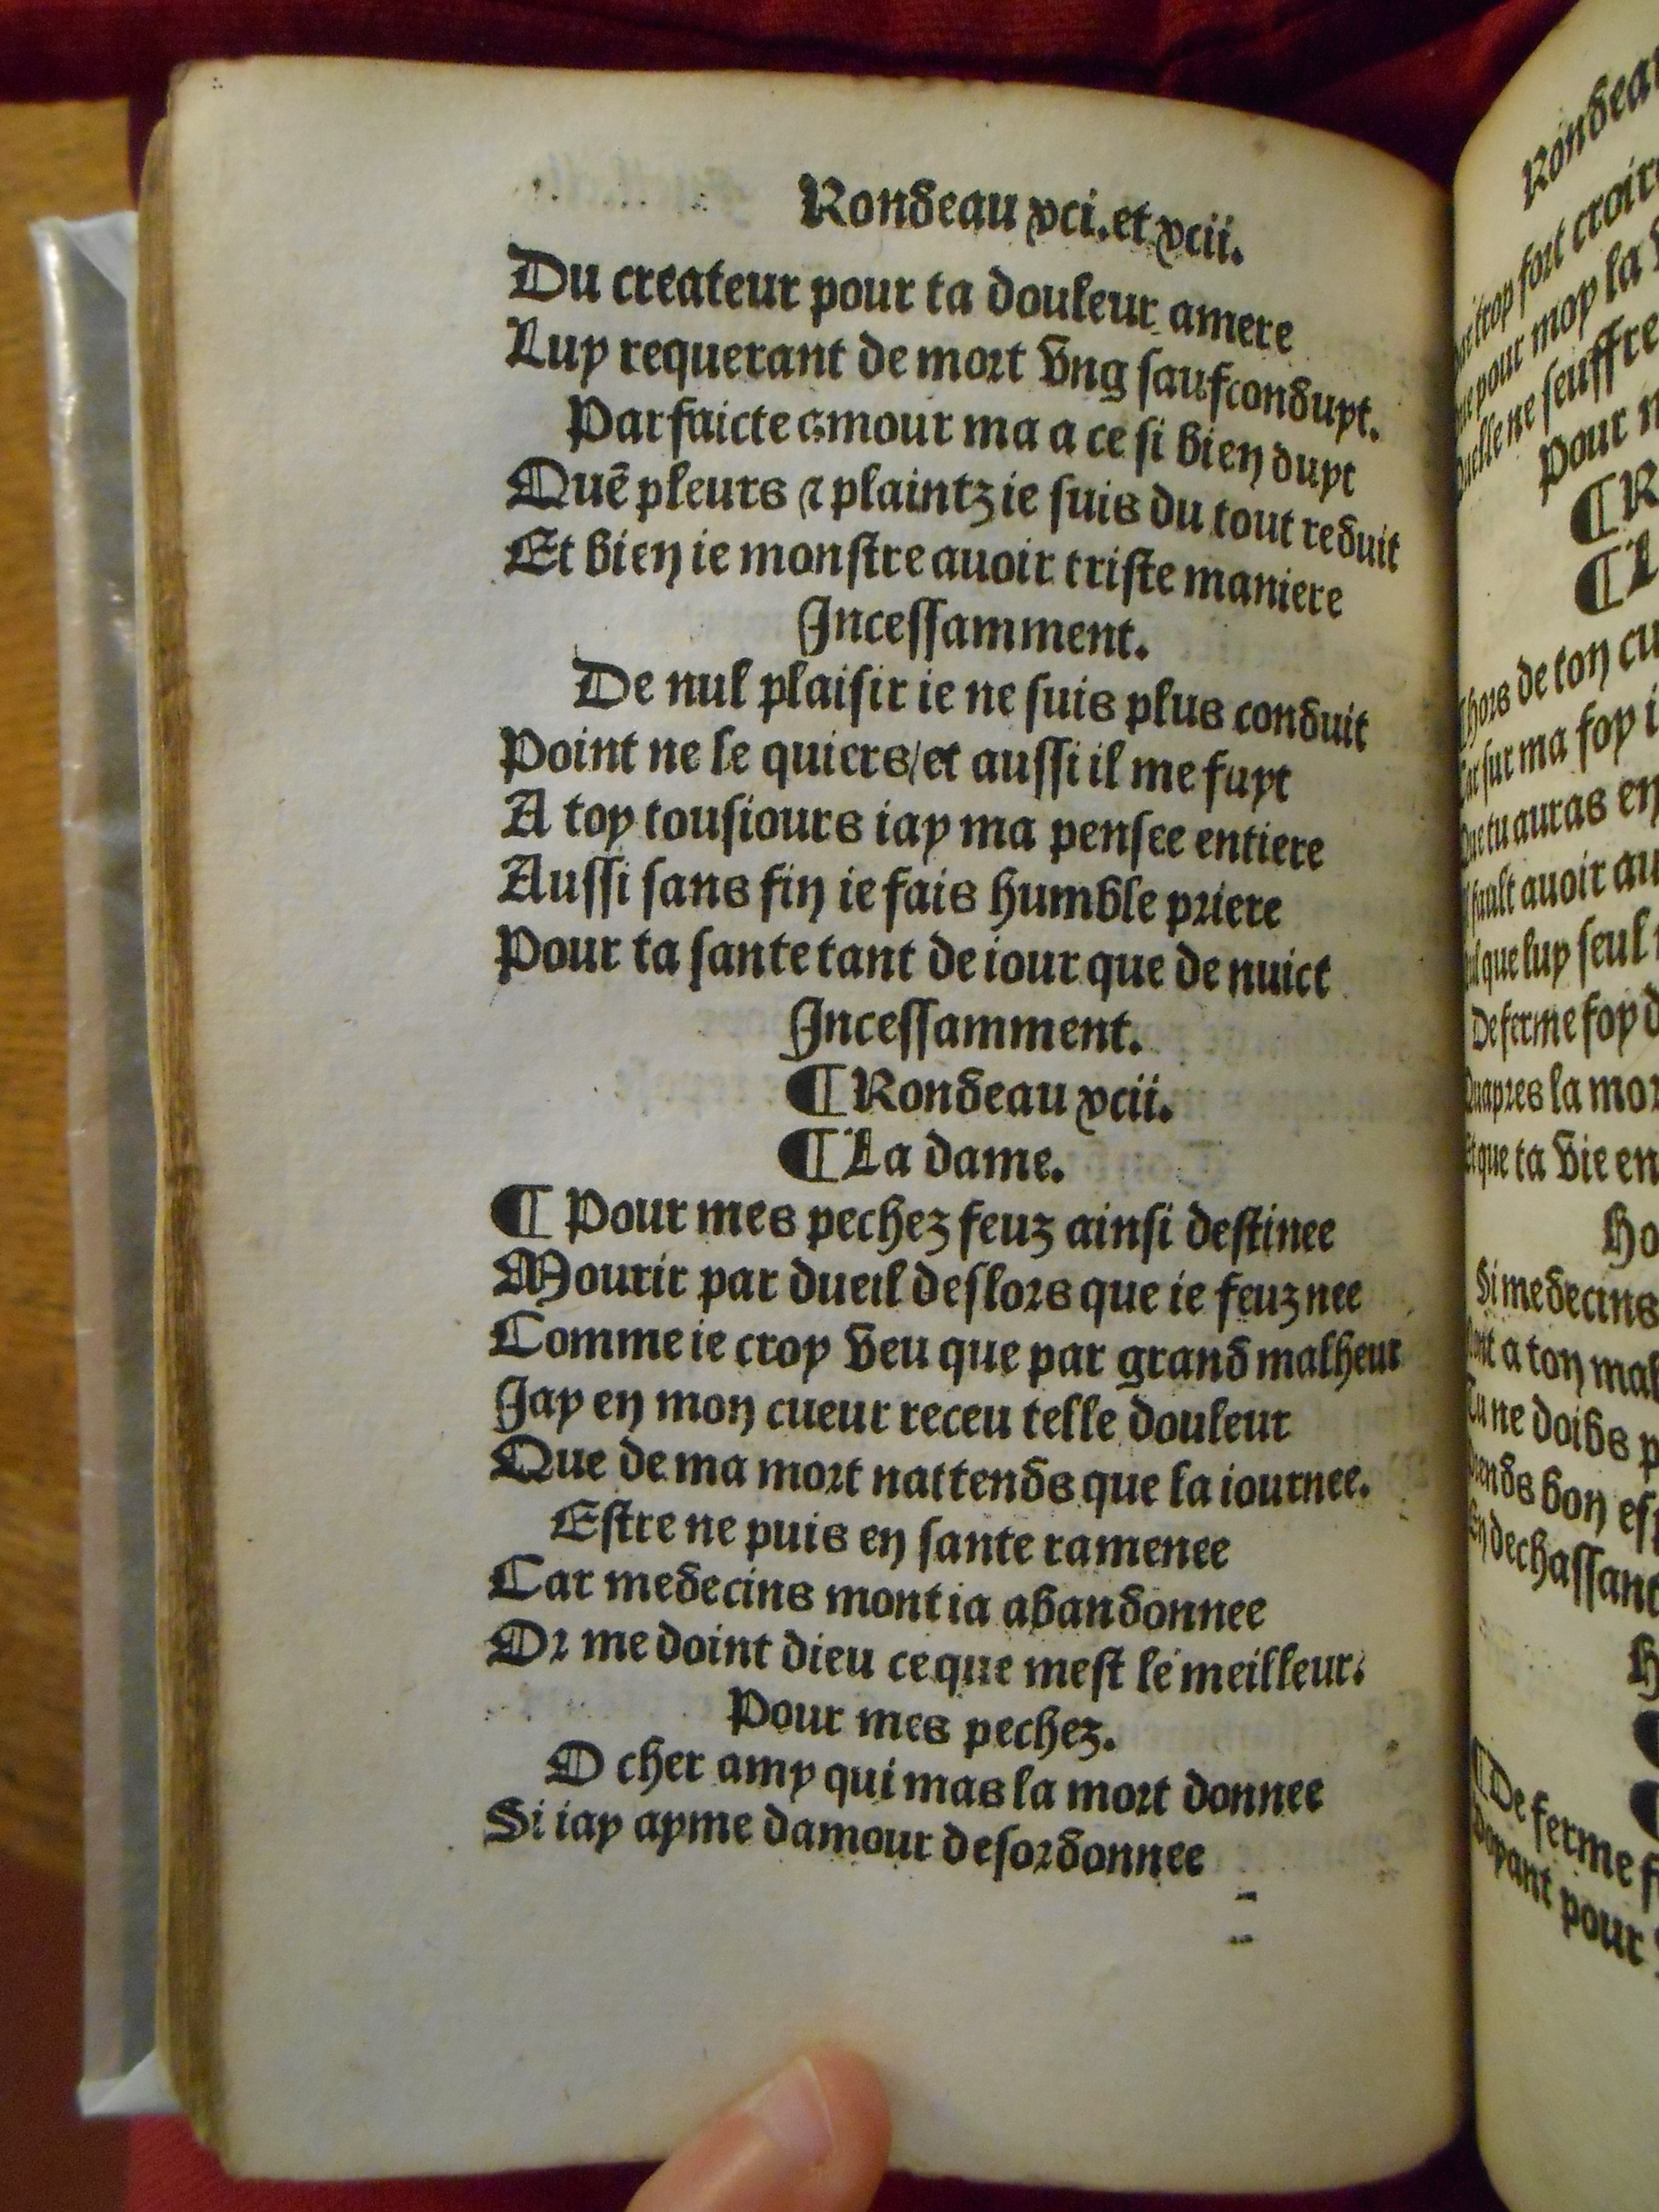 Rondeau xci. et xcii.
Du createur pour ta douleur amere
Luy requerant de mort vng saufconduyt.
Parfaicte amour ma a ce si bien duyt
Quē pleurs ⁊ plaintz ie suis du tout reduit
Et bien ie monstre auoir triste maniere
Incessamment.
De nul plaisir ie ne suis plus conduit
Point ne le quiers/et aussi il me fuyt
A toy tousiours iay ma pensee entiere
Aussi sans fin ie fais humble priere
Pour ta sante tant de iour que de nuict
Incessamment.
¶ Rondeau xcii.
¶ La dame.
¶ Pour mes pechez feuz ainsi destinee
Mourir par dueil deslors que ie feuz nee
Comme ie croy veu que par grand malheur
Jay en mon cueur receu telle douleur
Que de ma mort nattends que la iournee.
Estre ne puis en sante ramenee
Car medecins mont ia abandonnee
Or me doint dieu ce que mest le meilleur.
Pour mes pechez.
O cher amy qui mas la mort donnee
Si iay ayme damour desordonnee
Rondeau
trop fort croire
pour moy la
ne seuffre
Pour
¶ R
¶ L
hors de ton cu
Car sur ma foy i
Que tu auras en
fault auoir au
que luy seul
De ferme foy d
Quapres la mor
Et que ta vie en
Ho
Si medecins
a ton mal
Tu ne doibs p
Prends bon esp
En dechassant
H
¶ De ferme f
pour